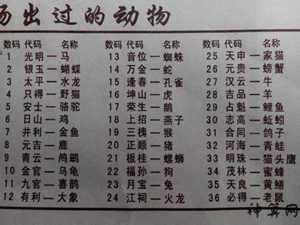 场出过的动物
数码 代码 名称 数码 代码 名称 数码 代码 名称
1 光明—马 13 音位—蜘蛛 25 天申—家猫
2 银玉—蝴蝶 14 万金—蛇 26 元贵—螃蟹
3 太平—水龙 15 逢春—孔雀 27 汉云—牛
4 只得—野猫 16 坤山—虎 28 吉品—羊
5 安士—骆驼 17 荣生—鹅 29 占魁—鲤鱼
6 日山—鸡 18 上招—燕子 30 志高—蚯蚓
7 井利—金鱼 19 三槐—猴 31 合同—鸽子
8 元吉—鹿 20 正顺—猪 32 河海—青蛙
9 青云—鸬鹚 21 板桂—螺蛳 33 明珠—猫头鹰
10 金官—乌龟 22 福孙—狗 34 茂林—蜜蜂
11 九官—喜鹊 23 月宝—兔 35 天良—黄鳝
12 有利—大象 24 江祠—火龙 36 必得—老鼠
神算网